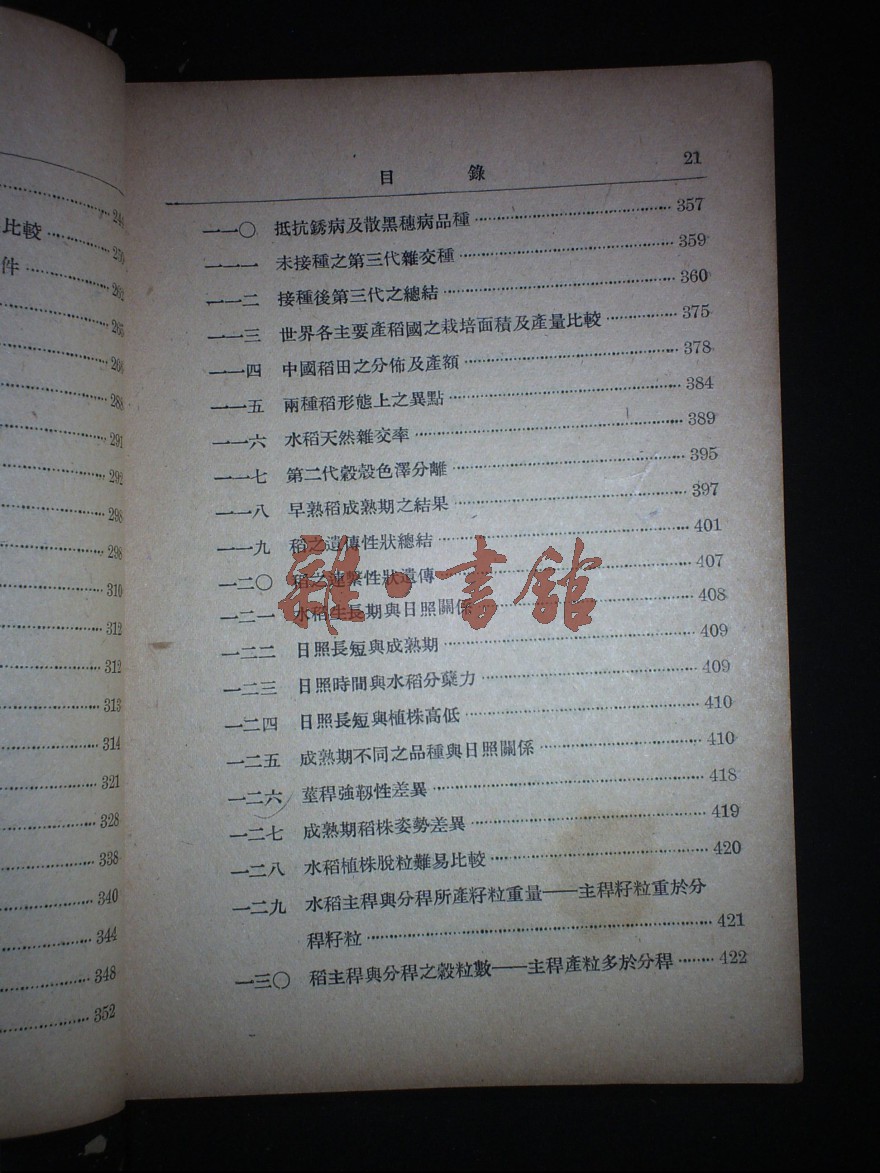 比較
件
244
250
262
265
266
288
291
292
298
298
310
312
312
313
314
321
328
338
340
344
348
352
目 錄 21
一一〇 抵抗銹病及散黑穗病品種 357
一一一 未接種之第三代雜交種 359
一一二 接種後第三代之總結 360
一一三 世界各主要產稻國之栽培面積及產量比較 375
一一四 中國稻田之分佈及產額 378
一一五 兩種稻形態上之異點 384
一一六 水稻天然雜交率 389
一一七 第二代穀殼色澤分離 395
一一八 早熟稻成熟期之結果 397
一一九 稻之遺傳性狀總結 401
一二〇 稻之連繫性狀遺傳 407
一二一 水稻生長期與日照關係 408
一二二 日照長短與成熟期 409
一二三 日照時間與水稻分蘗力 409
一二四 日照長短與植株高低 410
一二五 成熟期不同之品種與日照關係 410
一二六 莖稈強韌性差異 418
一二七 成熟期稻株姿勢差異 419
一二八 水稻植株脫粒難易比較 420
一二九 水稻主稈與分稈所產籽粒重量——主稈籽粒重於分
稈籽粒 421
一三〇 稻主稈與分稈之穀粒數——主稈產粒多於分稈 422
雜·書館